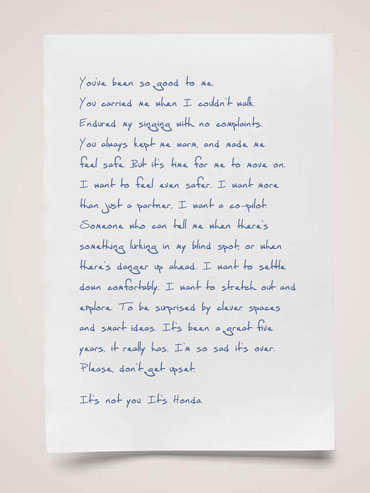 You've been so good to me.
You carried me when I couldn't walk.
Endured my singing with no complaints.
You always kept me warm, and made me
feel safe. But it's time for me to move on.
I want to feel even safer. I want more
than just a partner, I want a co-pilot.
Someone who can tell me when there's
something lurking in my blind spot, or when
there's danger up ahead. I want to settle
down comfortably. I want to stretch out and
explore. To be surprised by clever spaces
and smart ideas. It's been a great five
years, it really has. I'm so sad it's over.
Please, don't get upset.
It's not you. It's Honda.